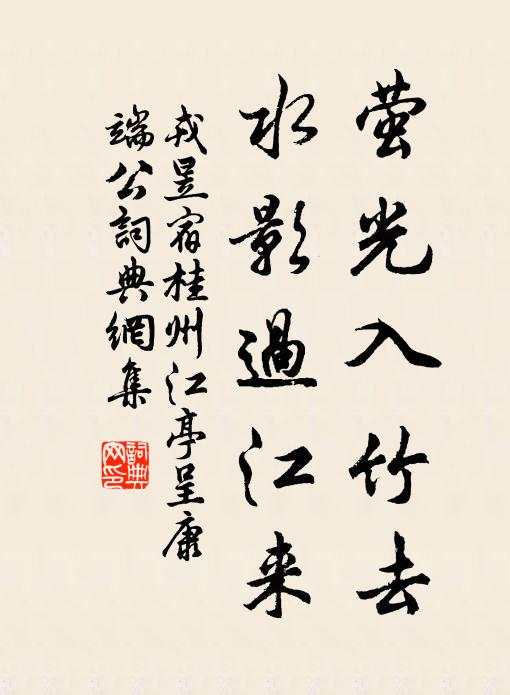 萤光入竹去
水影過江来
戎昱宿桂州江亭呈康
端公詞典網集
詞典
网印